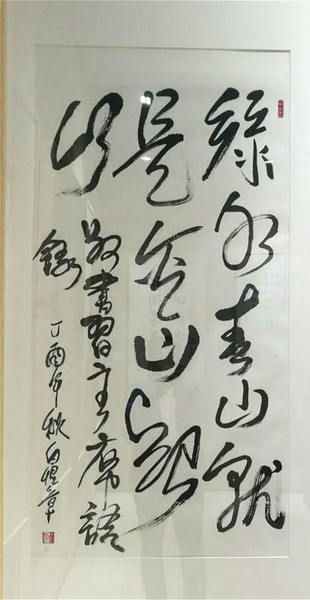 绿水青山就
是金山银
山
敬书習主席語
錄
丁酉年秋白煜章